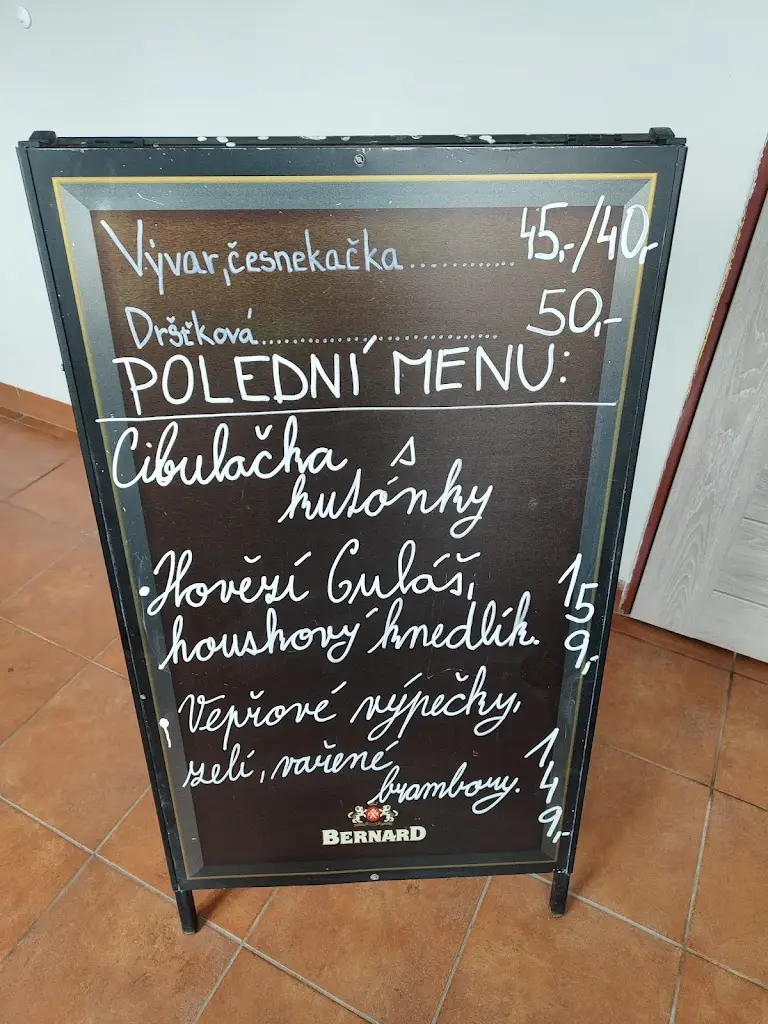 Vývar,česnekačka............45,-/40,-
Dršťková..............................50,-
POLEDNÍ MENU:
Cibulačka s
kutónky
• Hovězí Guláš,
houskový knedlík. 159,-
• Vepřové výpečky,
zelí, vařené
brambory. 149,-
BERNARD